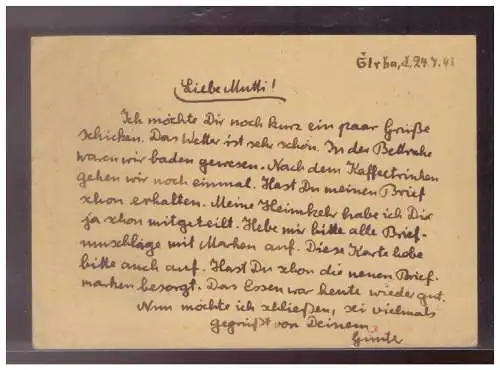 Štrba, d. 24.7.43
Liebe Mutti!
Ich möchte Dir noch kurz ein paar Grüße
schicken. Das Wetter ist sehr schön. In der Bettruhe
waren wir baden gewesen. Nach dem Kaffeetrinken
gehen wir noch einmal. Hast Du meinen Brief
schon erhalten. Meine Heimkehr habe ich Dir
ja schon mitgeteilt. Hebe mir bitte alle Brief-
umschläge mit Marken auf. Diese Karte hebe
bitte auch auf. Hast Du schon die neuen Brief-
marken besorgt. Das Essen war heute wieder gut.
Nun möchte ich schließen, sei vielmals
gegrüßt von Deinem
Günter